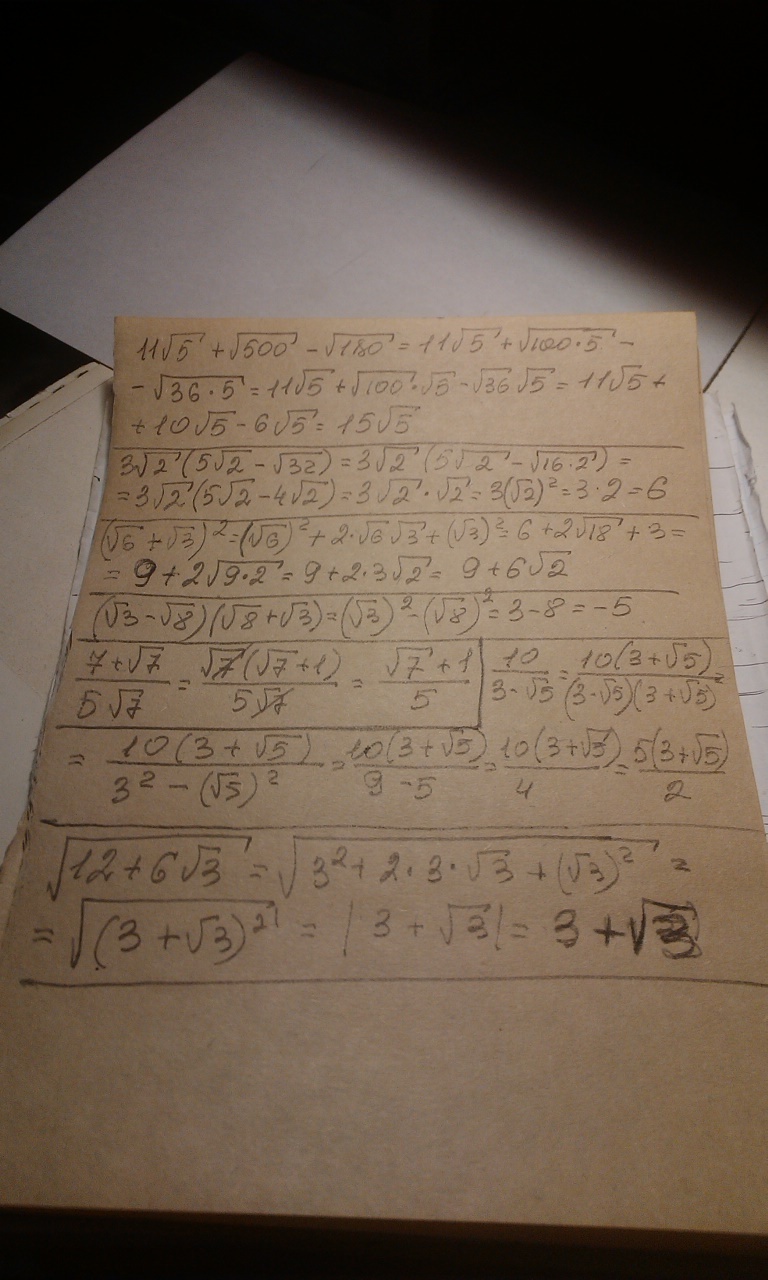 11√5 + √500 - √180 = 11√5 + √100·5 -
- √36·5 = 11√5 + √100·√5 - √36 √5 = 11√5 +
+ 10√5 - 6√5 = 15√5
3√2 (5√2 - √32) = 3√2 (5√2 - √16·2) =
= 3√2 (5√2 - 4√2) = 3√2 · √2 = 3(√2)² = 3·2 = 6
(√6 + √3)² = (√6)² + 2·√6 √3 + (√3)² = 6 + 2√18 + 3 =
= 9 + 2√9·2 = 9 + 2·3√2 = 9 + 6√2
(√3 - √8)(√8 + √3) = (√3)² - (√8)² = 3 - 8 = -5
(7 + √7)/(5√7) = (√7(√7 + 1))/(5√7) = (√7 + 1)/5
10/(3 - √5) = (10(3 + √5))/((3 - √5)(3 + √5)) =
= (10(3 + √5))/(3² - (√5)²) = (10(3 + √5))/(9 - 5) = (10(3 + √5))/4 = (5(3 + √5))/2
√(12 + 6√3) = √(3² + 2·3·√3 + (√3)²) =
= √((3 + √3)²) = |3 + √3| = 3 + √3